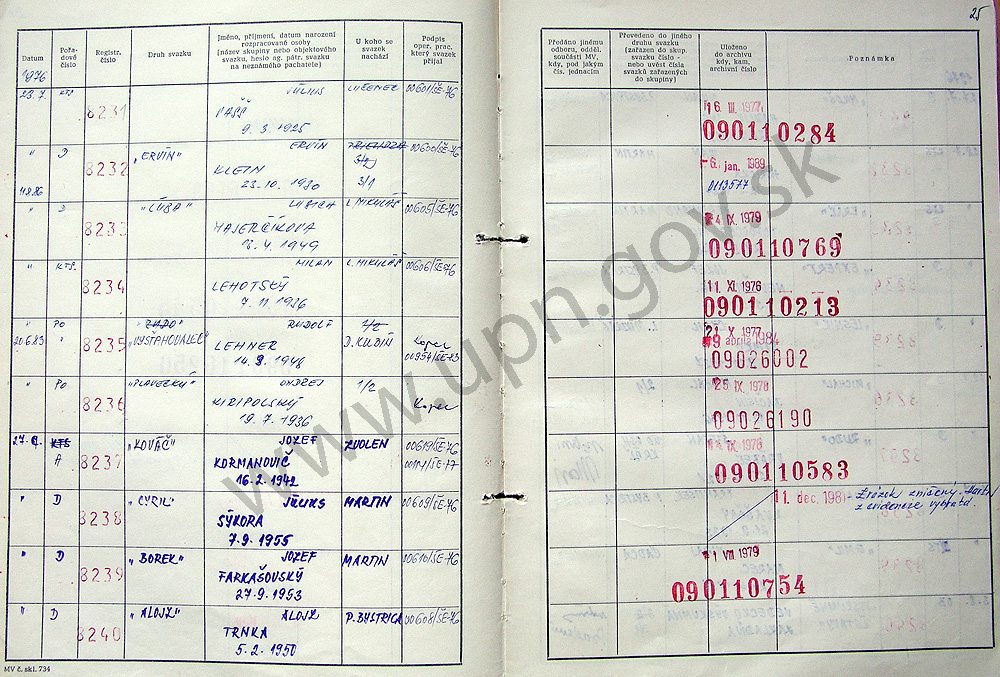 25
Datum
Pořa-
dové
číslo
Registr.
číslo
Druh svazku
Jméno, příjmení, datum narození
rozpracované osoby
(název skupiny nebo objektového
svazku, heslo ag. pátr. svazku
na neznámého pachatele)
U koho se
svazek
nachází
Podpis
oper. prac.
který svazek
přijal
Předáno jinému
odboru, odděl.
součásti MV,
kdy, pod jakým
čís. jednacím
Převedeno do jiného
druhu svazku
(zařazen do skup.
svazku číslo -
nebo uvést čísla
svazků zařazených
do skupiny)
Uloženo
do archivu
kdy, kam,
archivní číslo
Poznámka
1976
23.7. KTS 8231 JÚLIUS LUČENEC 00601/ŠE-76
VAŠŠ
9. 3. 1925
16. III. 1977
090110284
" D 8232 "ERVÍN" ERVÍN 00600/ŠE-76
KLEIN
23.-10. 1930 3/1
-6. jan. 1989
0113577
" D 8233 "ĽUBA" ĽUBICA L. MIKULÁŠ 00605/ŠE-76
MAJERČÍKOVA
4. 1949
4 IX. 1979
090110769
" KTS. 8234 MILAN L. MIKULÁŠ 00606/ŠE-76
LEHOTSKÝ
7. 11. 1936
11. XI. 1976
090110213
" PO 8235 RUDOLF 1/2
20.6.83 " "VYSŤAHOVALEC" LEHNER D. KUBÍN Kopec
14. 9. 1948 00954/ŠE-83
21 X 1977
9 apríla 1984
09026002
" PO 8236 "PLAVECKÝ" ONDREJ 1/2
KIRIPOLSKÝ Kopec
19. 7. 1936
25 IX. 1978
09026190
KTS 8237 "KOVÁČ" JOZEF ZVOLEN 00619/ŠE-76
A KORMANOVIČ
16. 2. 1942
IX. 1978
090110583
" D 8238 "CYRIL" JÚLIUS MARTIN 00609/ŠE-76
SÝKORA
7. 9. 1955
11. dec. 1981
z evidencie
" D 8239 "BOREK" JOZEF MARTIN 00610/ŠE-76
FARKAŠOVSKÝ
27.9. 1953
1 VIII 1979
090110754
" D 8240 "ALOJZ" ALOJZ P. BYSTRICA 00608/ŠE-76
TRNKA
5. 2. 1950
MV č. skl. 734
www.upn.gov.sk